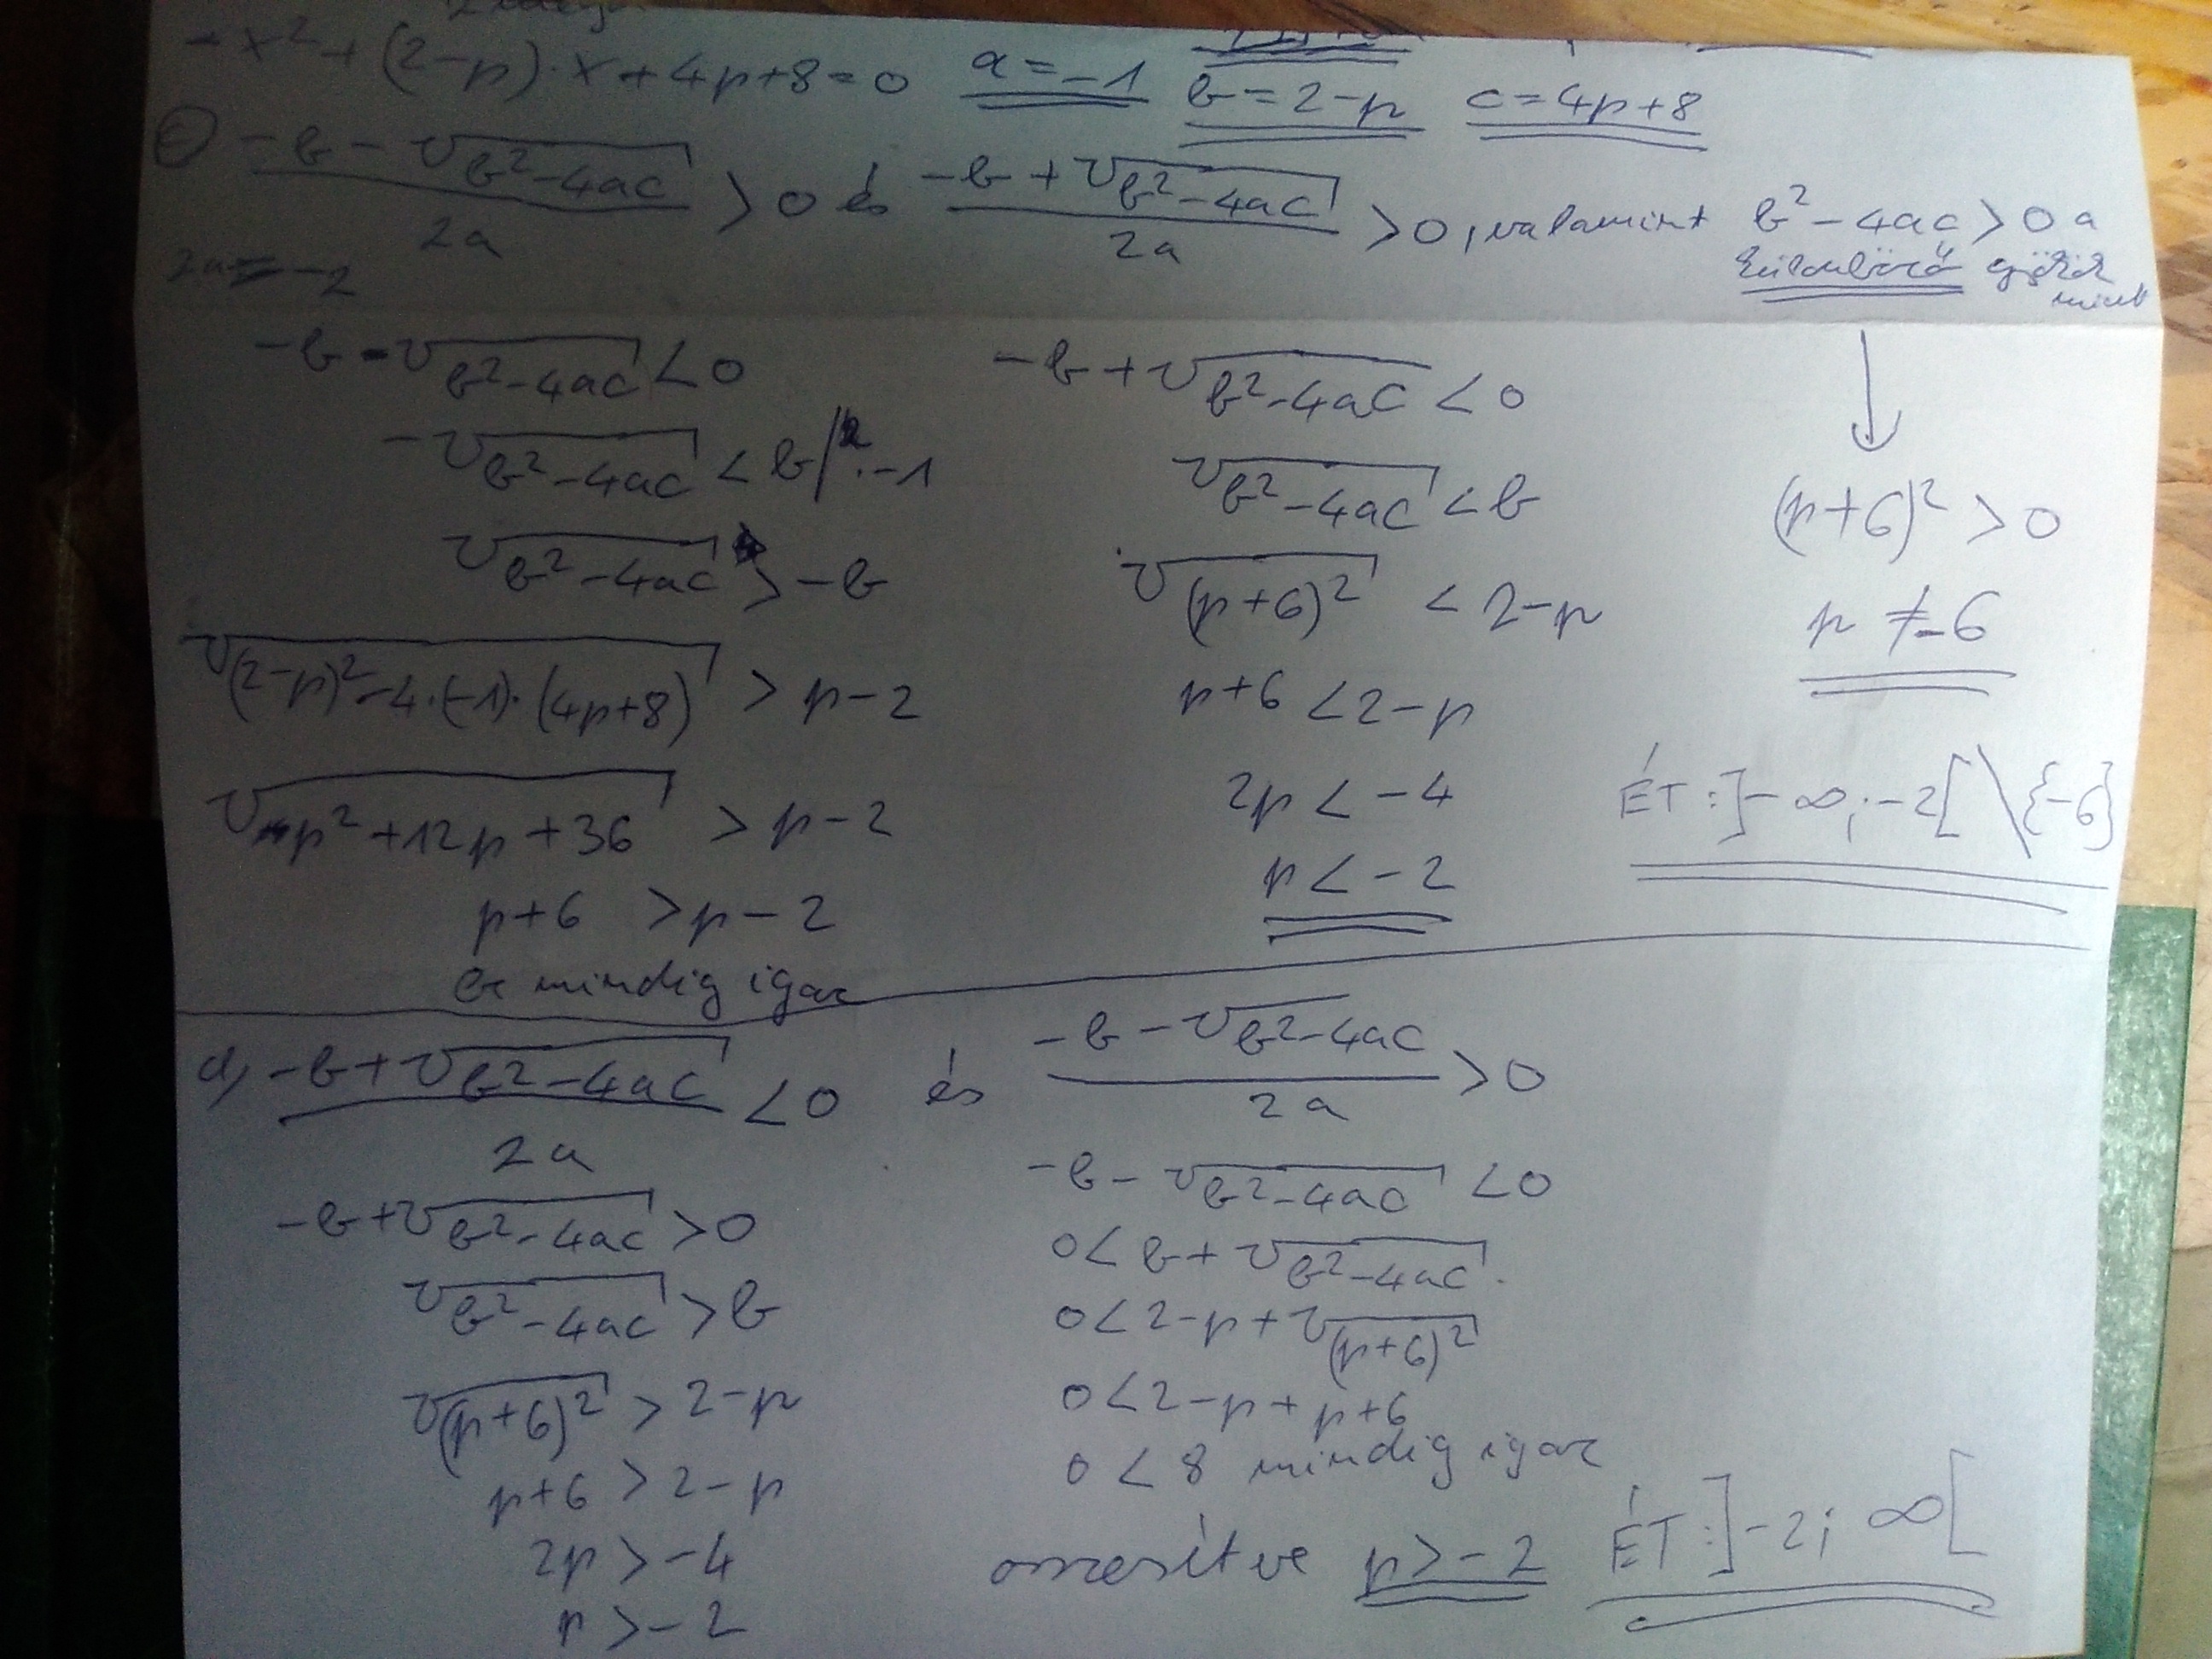 -x² + (2-p)·x + 4p+8 = 0   a = -1   b = 2-p   c = 4p+8
c) (-b - √(b²-4ac))/2a > 0 és (-b + √(b²-4ac))/2a > 0, valamint b²-4ac > 0 a
különböző gyökök miatt
2a = -2
-b - √(b²-4ac) < 0
-√(b²-4ac) < b /·-1
√(b²-4ac) > -b
√((2-p)²-4·(-1)·(4p+8)) > p-2
√(p²+12p+36) > p-2
p+6 > p-2
ez mindig igaz
-b + √(b²-4ac) < 0
√(b²-4ac) < b
√((p+6)²) < 2-p
p+6 < 2-p
2p < -4
p < -2
(p+6)² > 0
p ≠ -6
ÉT: ]-∞; -2[ \ {-6}
d) (-b + √(b²-4ac))/2a < 0 és (-b - √(b²-4ac))/2a > 0
-b + √(b²-4ac) > 0
√(b²-4ac) > b
√((p+6)²) > 2-p
p+6 > 2-p
2p > -4
p > -2
-b - √(b²-4ac) < 0
0 < b + √(b²-4ac)
0 < 2-p + √((p+6)²)
0 < 2-p + p+6
0 < 8 mindig igaz
összesítve p > -2 ÉT: ]-2; ∞[